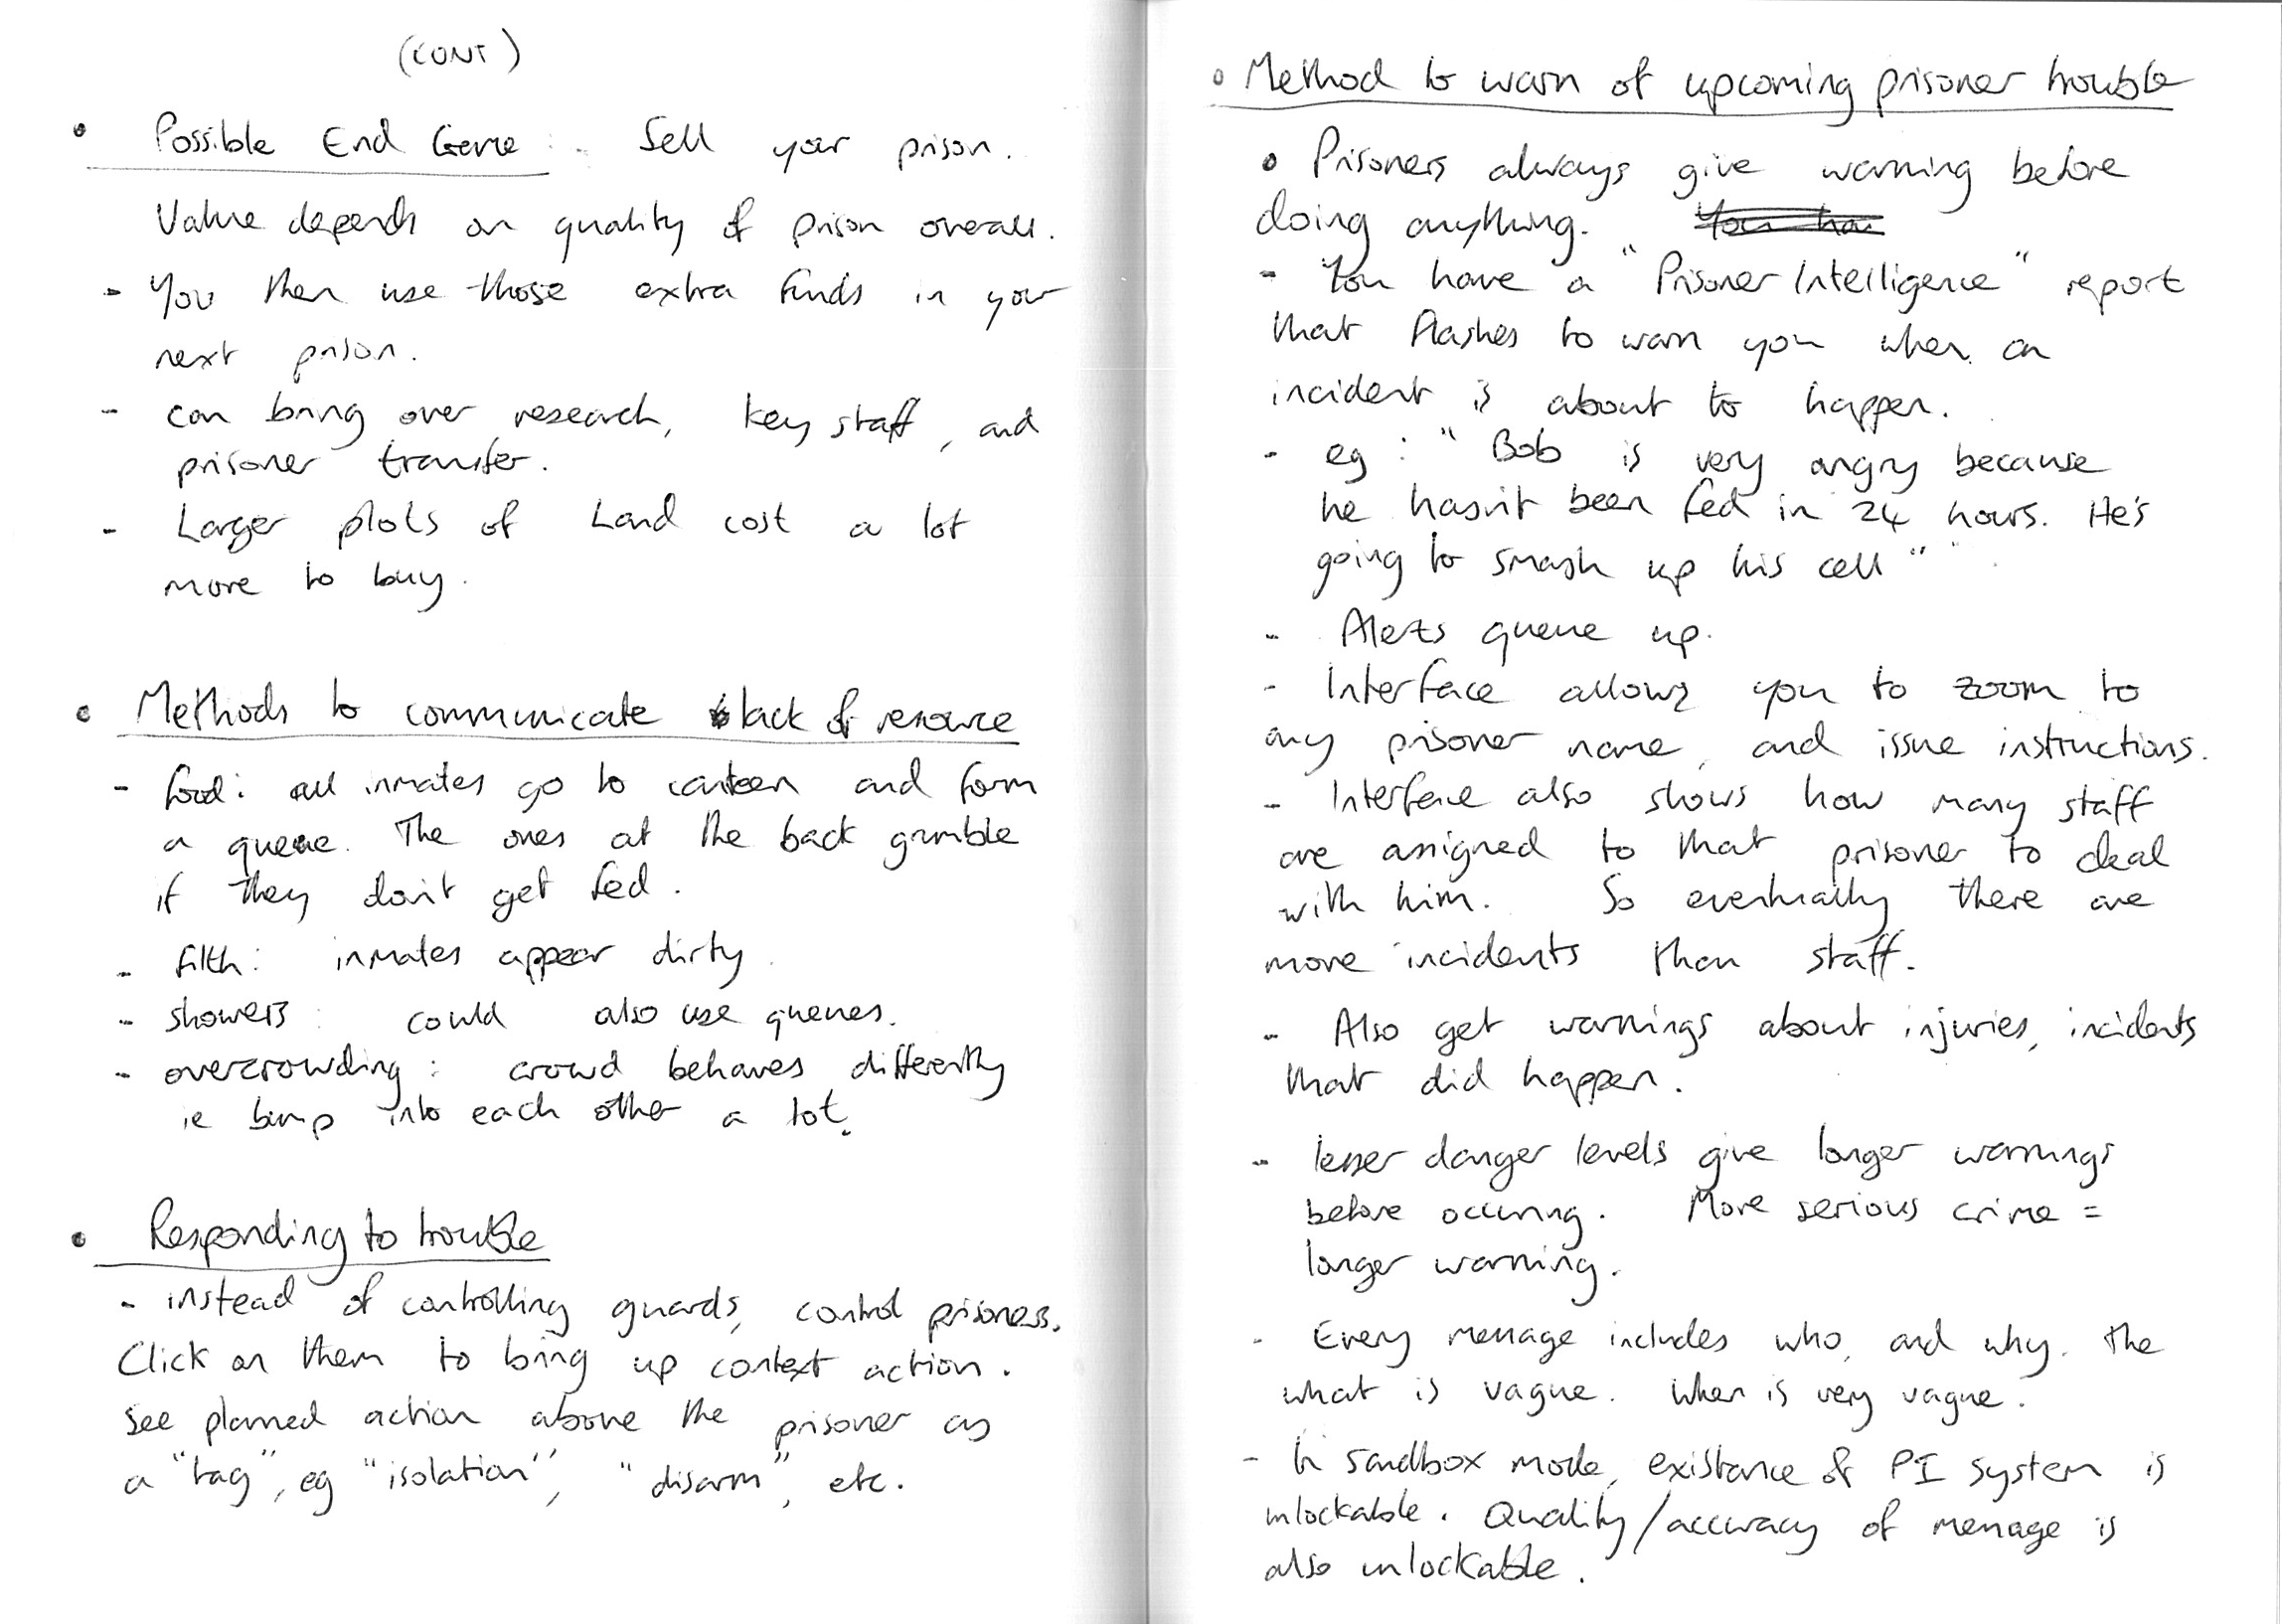 (CONT)
• Possible End Game : Sell your prison.
Value depends on quality of prison overall.
- You then use those extra funds in your
next prison.
- can bring over research, key staff, and
prisoner transfer.
- Larger plots of Land cost a lot
more to buy.
• Methods to communicate lack of resource
- food: all inmates go to canteen and form
a queue. The ones at the back grumble
if they don't get fed.
- filth: inmates appear dirty.
- showers: could also use queues.
- overcrowding: crowd behaves differently
ie bump into each other a lot.
• Responding to trouble
- instead of controlling guards, control prisoners.
Click on them to bring up context action.
See planned action above the prisoner as
a "tag", eg "isolation", "disarm", etc.
• Method to warn of upcoming prisoner trouble
• Prisoners always give warning before
doing anything. You hav
- You have a "Prisoner Intelligence" report
that flashes to warn you when an
incident is about to happen.
- eg: "Bob is very angry because
he hasn't been fed in 24 hours. He's
going to smash up his cell"
- Alerts queue up.
- Interface allows you to zoom to
any prisoner name, and issue instructions.
- Interface also shows how many staff
are assigned to that prisoner to deal
with him. So eventually there are
more incidents than staff.
- Also get warnings about injuries, incidents
that did happen.
- lesser danger levels give longer warnings
before occuring. More serious crime =
longer warning.
- Every message includes who, and why. The
what is vague. When is very vague.
- In sandbox mode, existance of PI system is
unlockable. Quality/accuracy of message is
also unlockable.